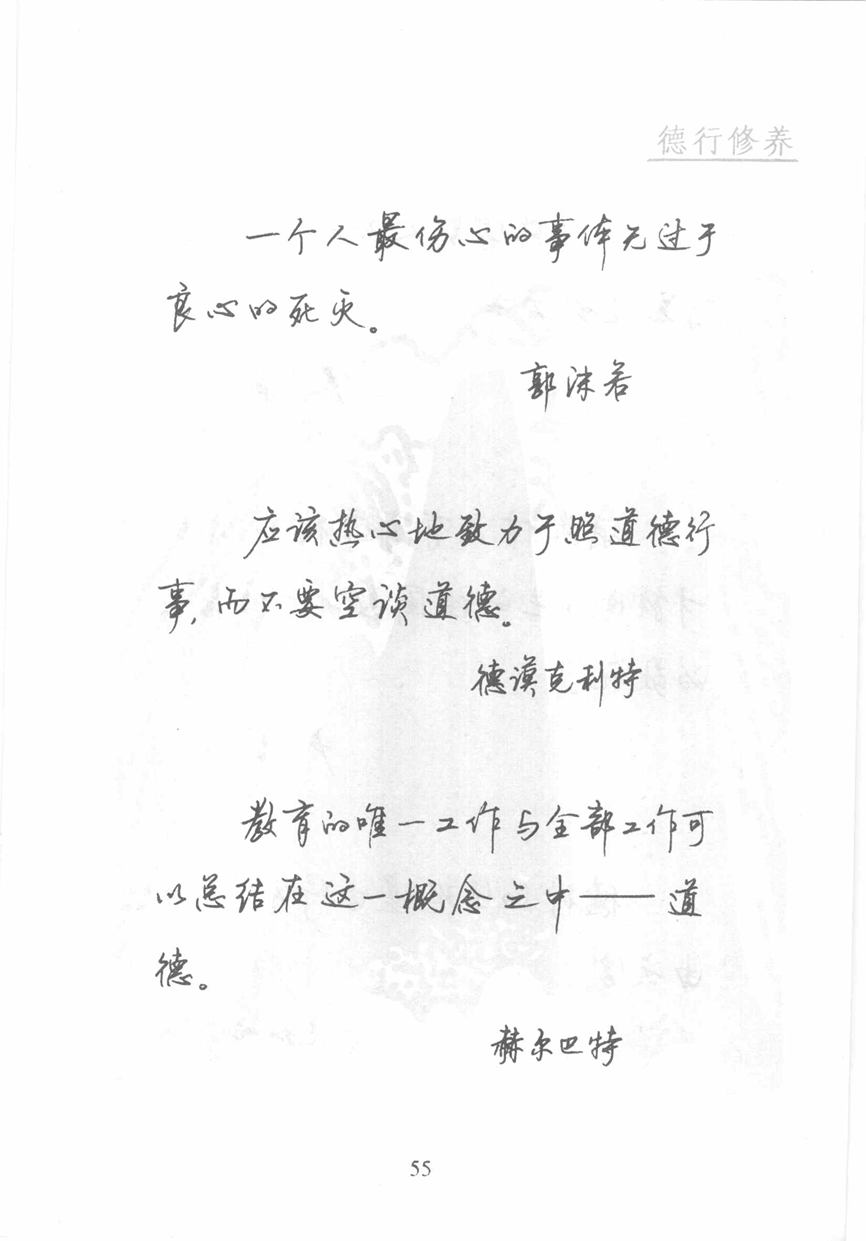 德行修养
一个人最伤心的事体无过于
良心的死灭。
郭沫若
应该热心地致力于照道德行
事,而不要空谈道德。
德谟克利特
教育的唯一工作与全部工作可
以总结在这一概念之中——道
德。
赫尔巴特
55